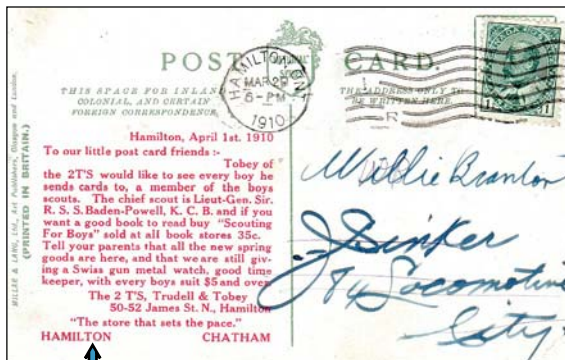 POST CARD.
HAMILTON, ONT.
MAR 29
6-PM
1910
CANADA POSTAGE
1 1
THIS SPACE FOR INLAND
COLONIAL, AND CERTAIN
FOREIGN CORRESPONDENCE
THE ADDRESS ONLY TO
BE WRITTEN HERE.
MILLAR & LANG, Ltd., Art Publishers, Glasgow and London.
(PRINTED IN BRITAIN.)
Hamilton, April 1st. 1910
To our little post card friends :-
Tobey of
the 2T'S would like to see every boy he
sends cards to, a member of the boys
scouts. The chief scout is Lieut-Gen. Sir.
R. S. S. Baden-Powell, K. C. B. and if you
want a good book to read buy "Scouting
For Boys" sold at all book stores 35c.
Tell your parents that all the new spring
goods are here, and that we are still giv-
ing a Swiss gun metal watch, good time
keeper, with every boys suit $5 and over
The 2 T'S, Trudell & Tobey
50-52 James St. N., Hamilton
"The store that sets the pace."
HAMILTON CHATHAM
Willie Branton
84 Locomotive
City